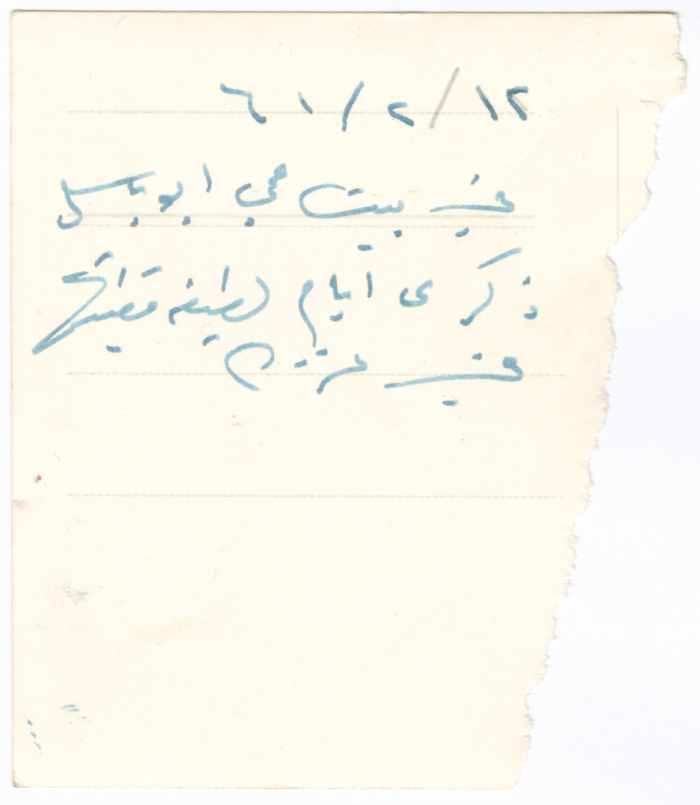 ١٢/٢/٦١
في بيت عمي ابو باسل
ذكرى ايام لطيفه قضيناها
في غزة